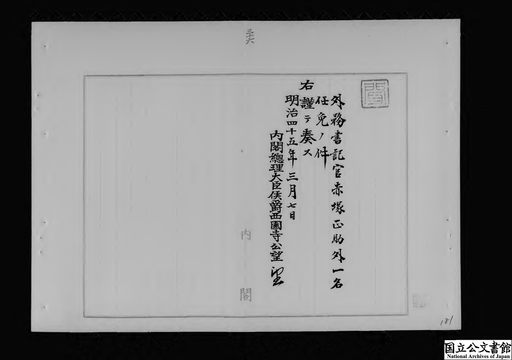 外務書記官赤塚正助外一名
任免ノ件
右謹テ奏ス
明治四十五年三月七日
内閣総理大臣侯爵西園寺公望
内閣
国立公文書館
National Archives of Japan